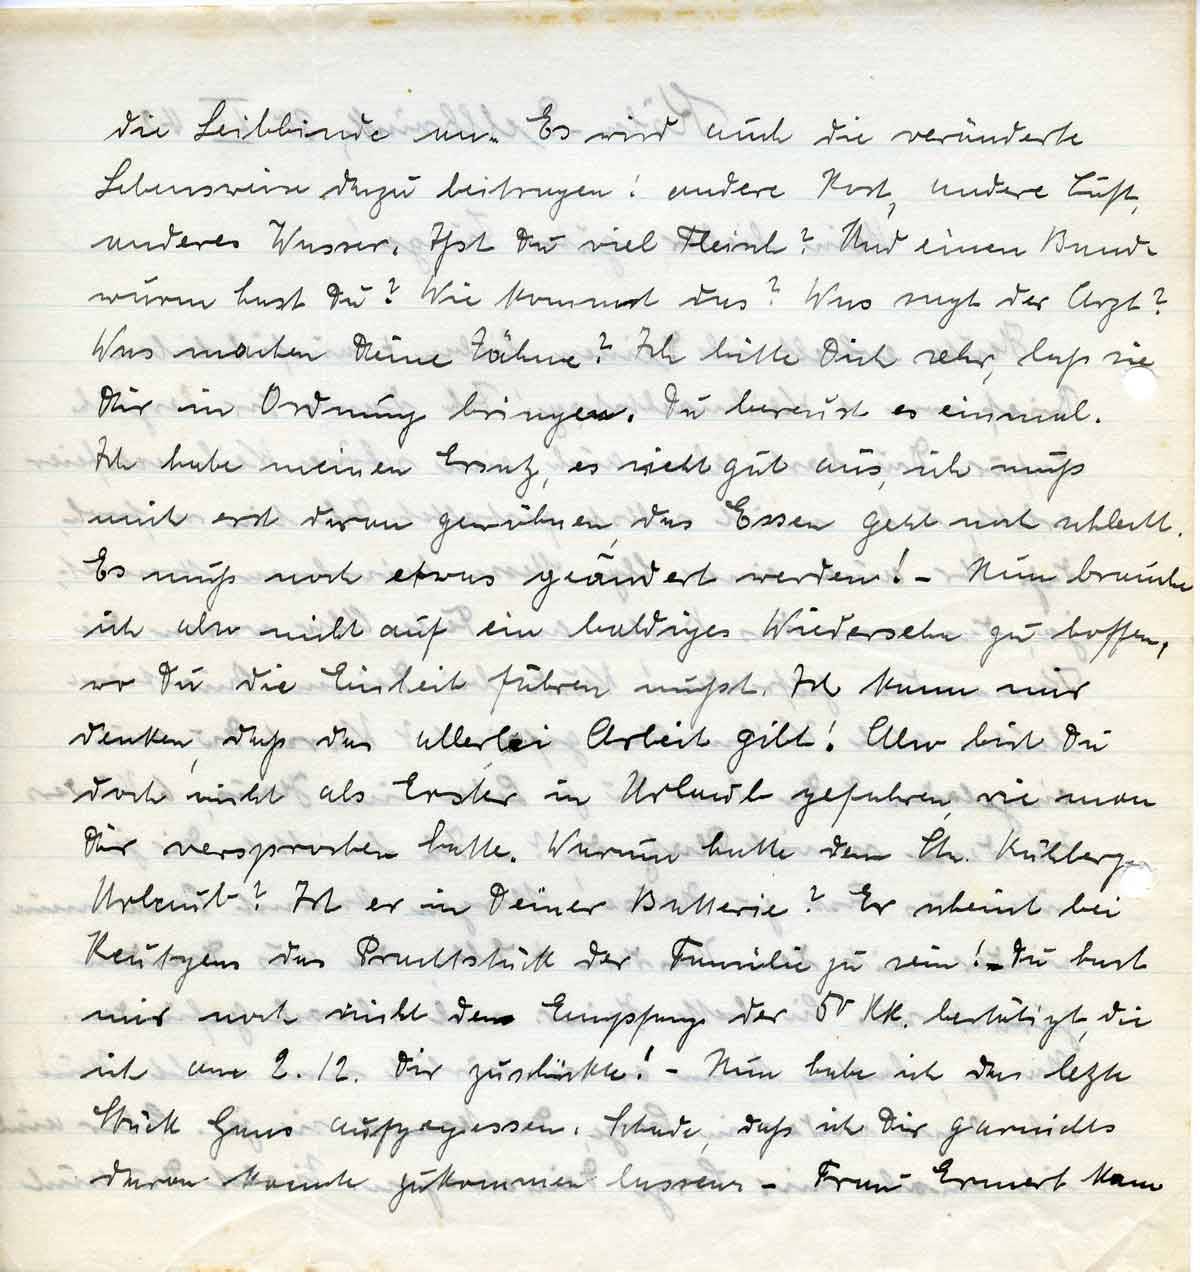 die Leibbinde um. Es wird auch die veränderte
Lebensweise dazu beitragen! andere Kost, andere Luft,
anderes Wasser. Ißt Du viel Fleisch? Und einen Band-
wurm hast Du? Wie kommst das? Was sagt der Arzt?
Was machen Deine Zähne? Ich bitte Dich sehr, laß sie
Dir in Ordnung bringen. Du bereust es einmal.
Ich habe meinen Ersatz, es sieht gut aus, ich muß
mich erst daran gewöhnen, das Essen geht noch schlecht.
Es muß noch etwas geändert werden! - Nun brauche
ich also nicht auf ein baldiges Wiedersehn zu hoffen,
wo Du die Einheit führen mußt. Ich kann mir
denken, daß das allerlei Arbeit gibt! Also bist Du
doch nicht als Erster in Urlaub gefahren, wie man
Dir versprochen hatte. Warum hatte denn Kühlberg
Urlaub? Ist er in Deiner Batterie? Er scheint bei
das Prachtstück der Familie zu sein! - Du hast
mir noch nicht den Empfang der 50 RM. bestätigt, die
ich am 2. 12. Dir zuschickte! - Nun habe ich das letzte
Stück Gans aufgegessen. Schade, daß ich Dir garnichts
davon konnte zukommen lassen. - Frau Ermert kam